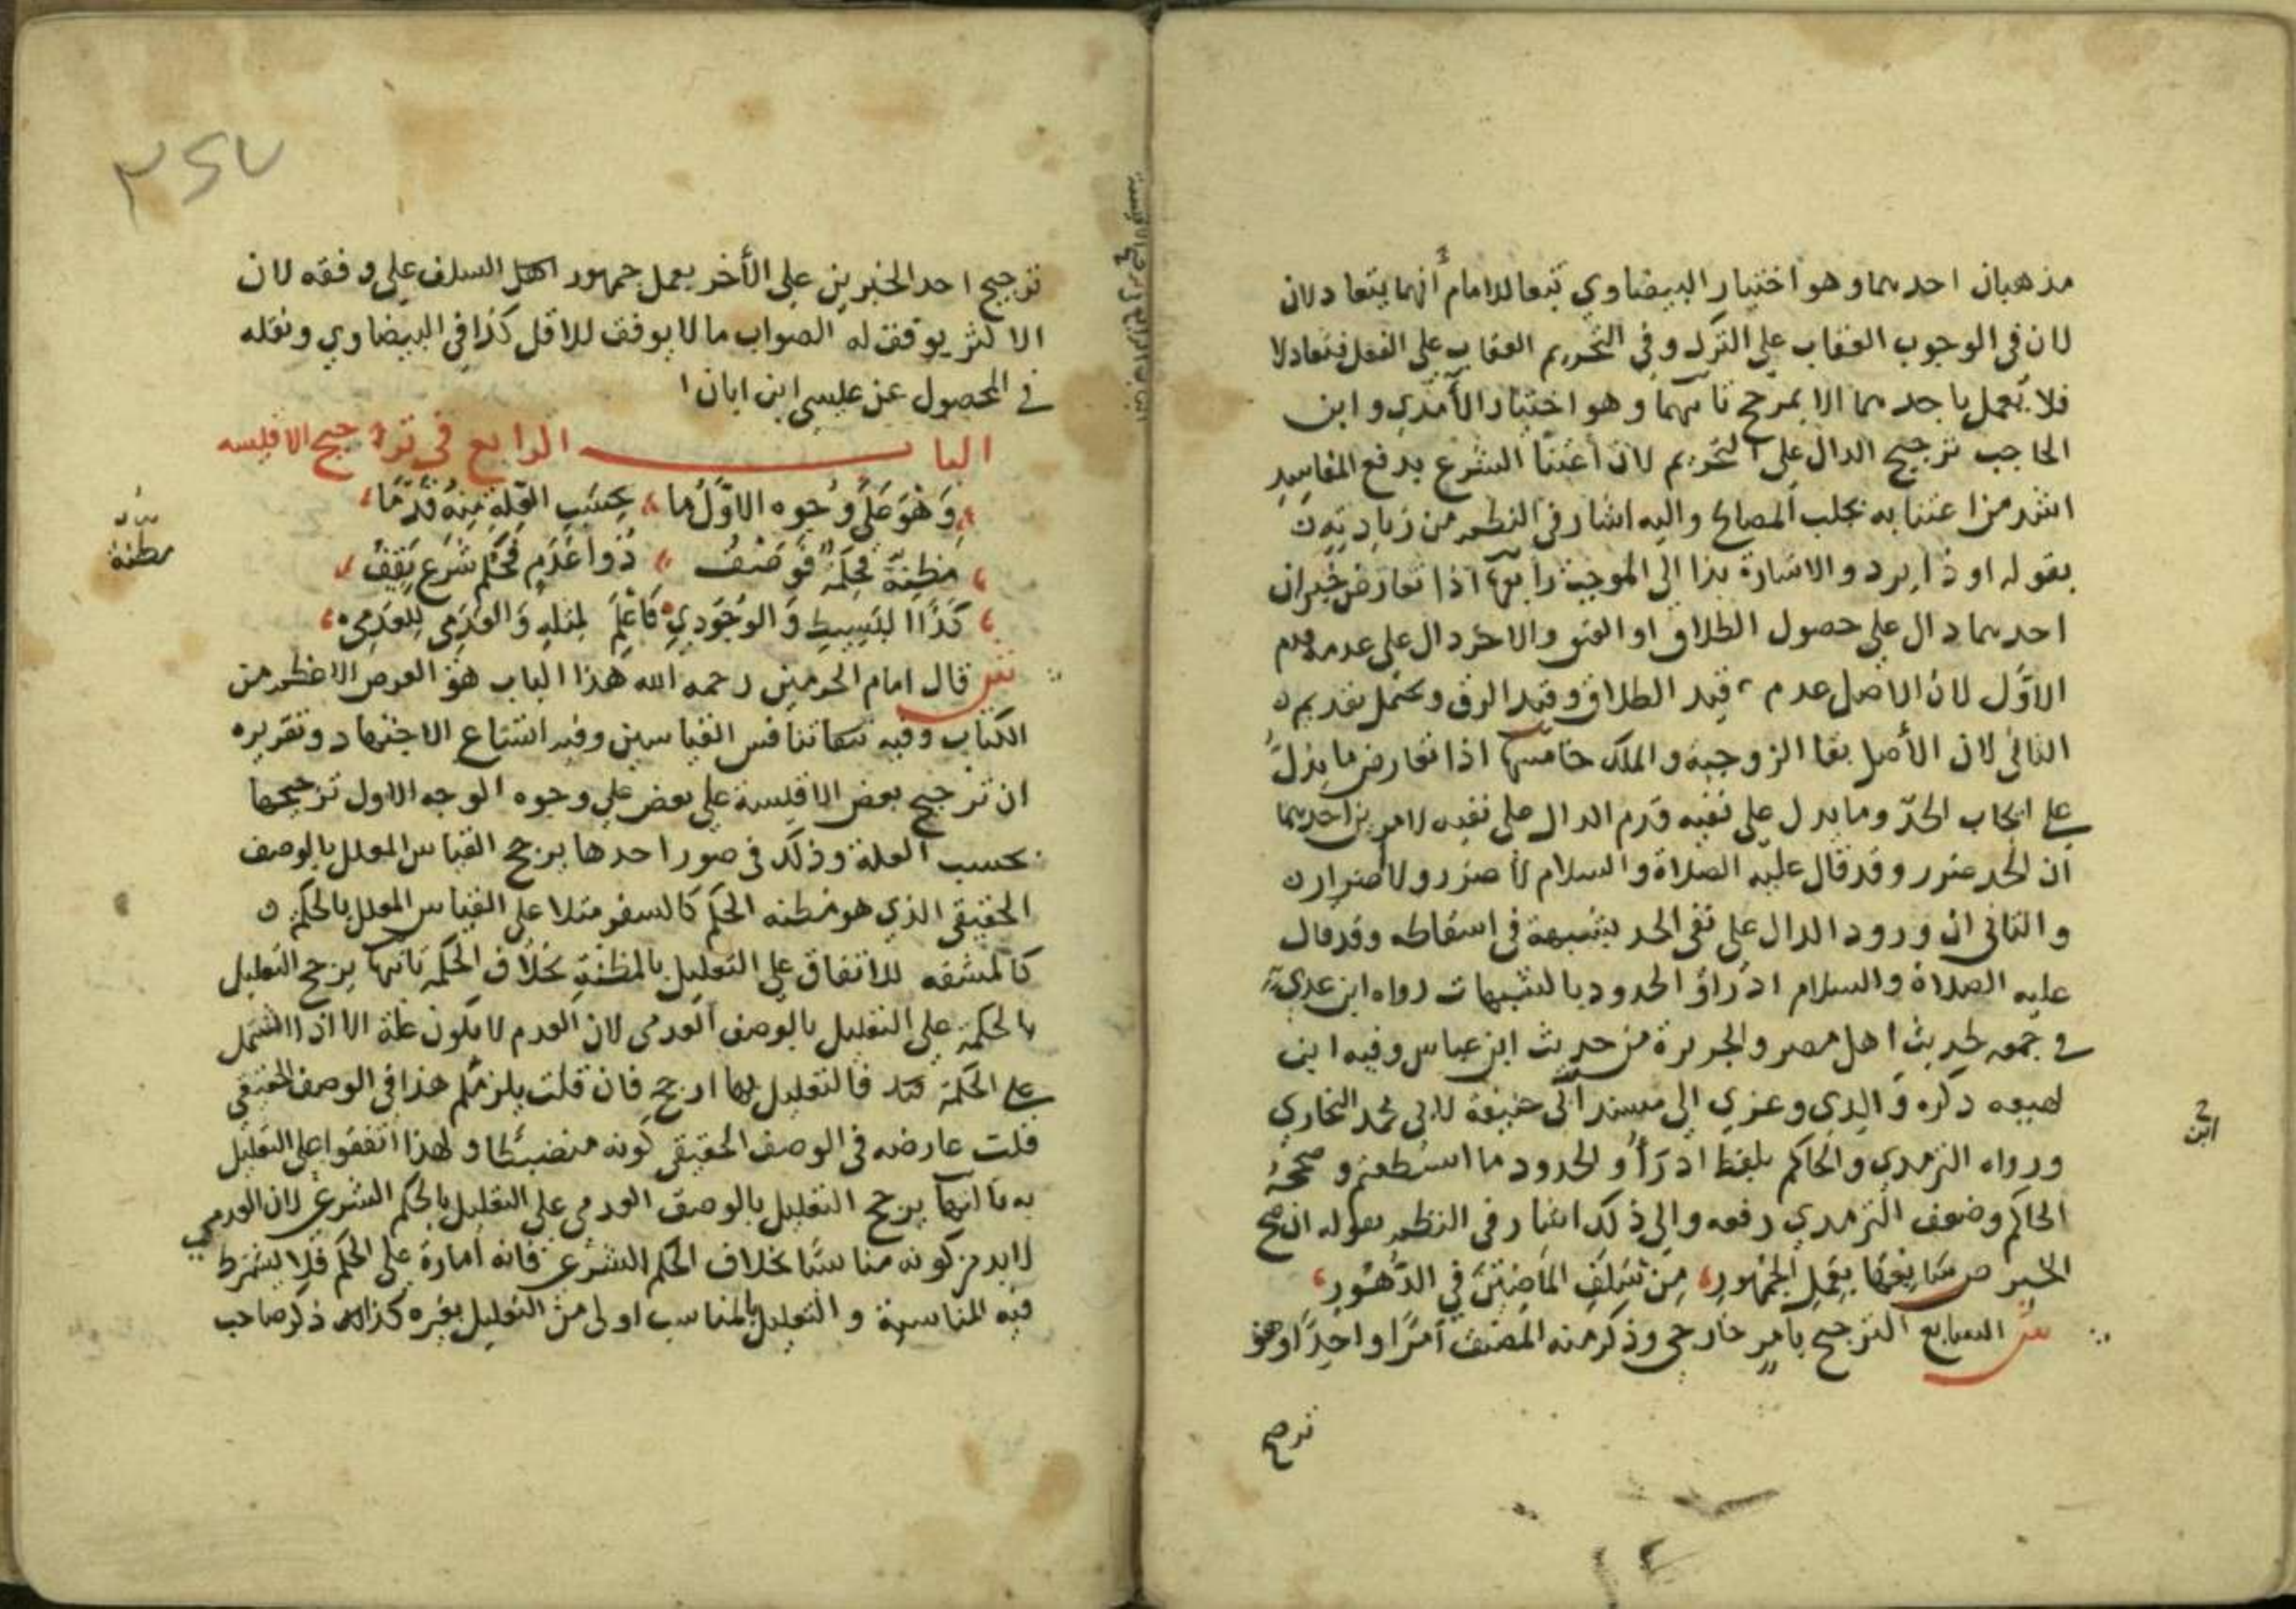 مذهبان احدهما وهو اختيار البيضاوي تبعا للامام انهما يتعادلان
لان في الوجوب العقاب على الترك وفي التحريم العقاب على الفعل فتعادلا
فلا يعمل باحدهما الا بمرجح ثانيهما وهو اختيار الآمدي وابن
الحاجب ترجيح الدال على التحريم لان اعتنا الشرع بدفع المفاسد
اشد من اعتنائه بجلب المصالح واليه اشار في النظم من زيادته
بقوله او ذا يرد والاشارة بذا الى الموجب رابعها اذا تعارض خبران
احدهما دال على حصول الطلاق او العتق والاخر دال على عدمه قدم
الاول لان الاصل عدم قيد الطلاق وقيد الرق ويحتمل تقديم
الثاني لان الأصل بقا الزوجية والملك خامسها اذا تعارض ما يدل
على ايجاب الحد وما يدل على نفيه قدم الدال على نفيه لامرين احدهما
ان الحد ضرر وقد قال عليه الصلاة والسلام لا ضرر ولا ضرار
والثاني ان ورود الدال على نفي الحد شبهة في اسقاطه وقد قال
عليه الصلاة والسلام ادرأوا الحدود بالشبهات رواه ابن عدي
في جمعه لحديث اهل مصر والجزيرة من حديث ابن عباس وفيه ابن
لهيعه ذكره والدي وعزي الى مسند ابي حنيفة لابي محمد البخاري
ورواه الترمدي والحاكم بلفظ ادرأوا الحدود ما استطعتم وصححه
الحاكم وضعف الترمدي رفعه والى ذلك اشار في النظم بقوله ان صح
الخبر ص سابعها بعمل الجمهور من سلف الماضين في الدهور
ش السابع الترجيح بامر خارجي وذكر منه المصنف امرا واحدا وهو
ترجيح
ابن
ترجيح احد الخبرين على الأخر بعمل جمهور اهل السلف على وفقه لان
الاكثر يوفق له الصواب ما لا يوفق للاقل كذا في البيضاوي ونقله
في المحصول عن عيسى ابن ابان
الباب الرابع في ترجيح الاقيسه
وهو على وجوه الاول ما بحسب العلة منه قدما
مظنة فحكمة فوصف ذوا عدم فحكم شرع يقف
كذا البسيط والوجودي فاعلم لمثله والعدمي للعدمي
ش قال امام الحرمين رحمه الله هذا الباب هو الغرض الاعظم من
الكتاب وفيه تنافس القياسين وفيه اتساع الاجتهاد وتقريره
ان ترجيح بعض الاقيسة على بعض على وجوه الوجه الاول ترجيحها
بحسب العلة وذلك في صور احدها يرجح القياس المعلل بالوصف
الحقيقي الذي هو مظنه الحكم كالسفر مثلا على القياس المعلل بالحكمه
كالمشقه للاتفاق على التعليل بالمظنة بخلاف الحكمه ثانيها يرجح التعليل
بالحكمة على التعليل بالوصف العدمي لان العدم لا يكون علة الا اذا اشتمل
على الحكمة فالتعليل بها ارجح فان قلت يلزمكم هذا في الوصف الحقيقي
قلت عارضه في الوصف الحقيقي كونه منضبطا ولهذا اتفقوا على التعليل
به ثالثها يرجح التعليل بالوصف العدمي على التعليل بالحكم الشرعي لان العدمي
لا بد من كونه مناسبا بخلاف الحكم الشرعي فانه امارة على الحكم فلا يشترط
فيه المناسبة والتعليل بالمناسب اولى من التعليل بغيره كذا ذكر صاحب
بيان
مظنة